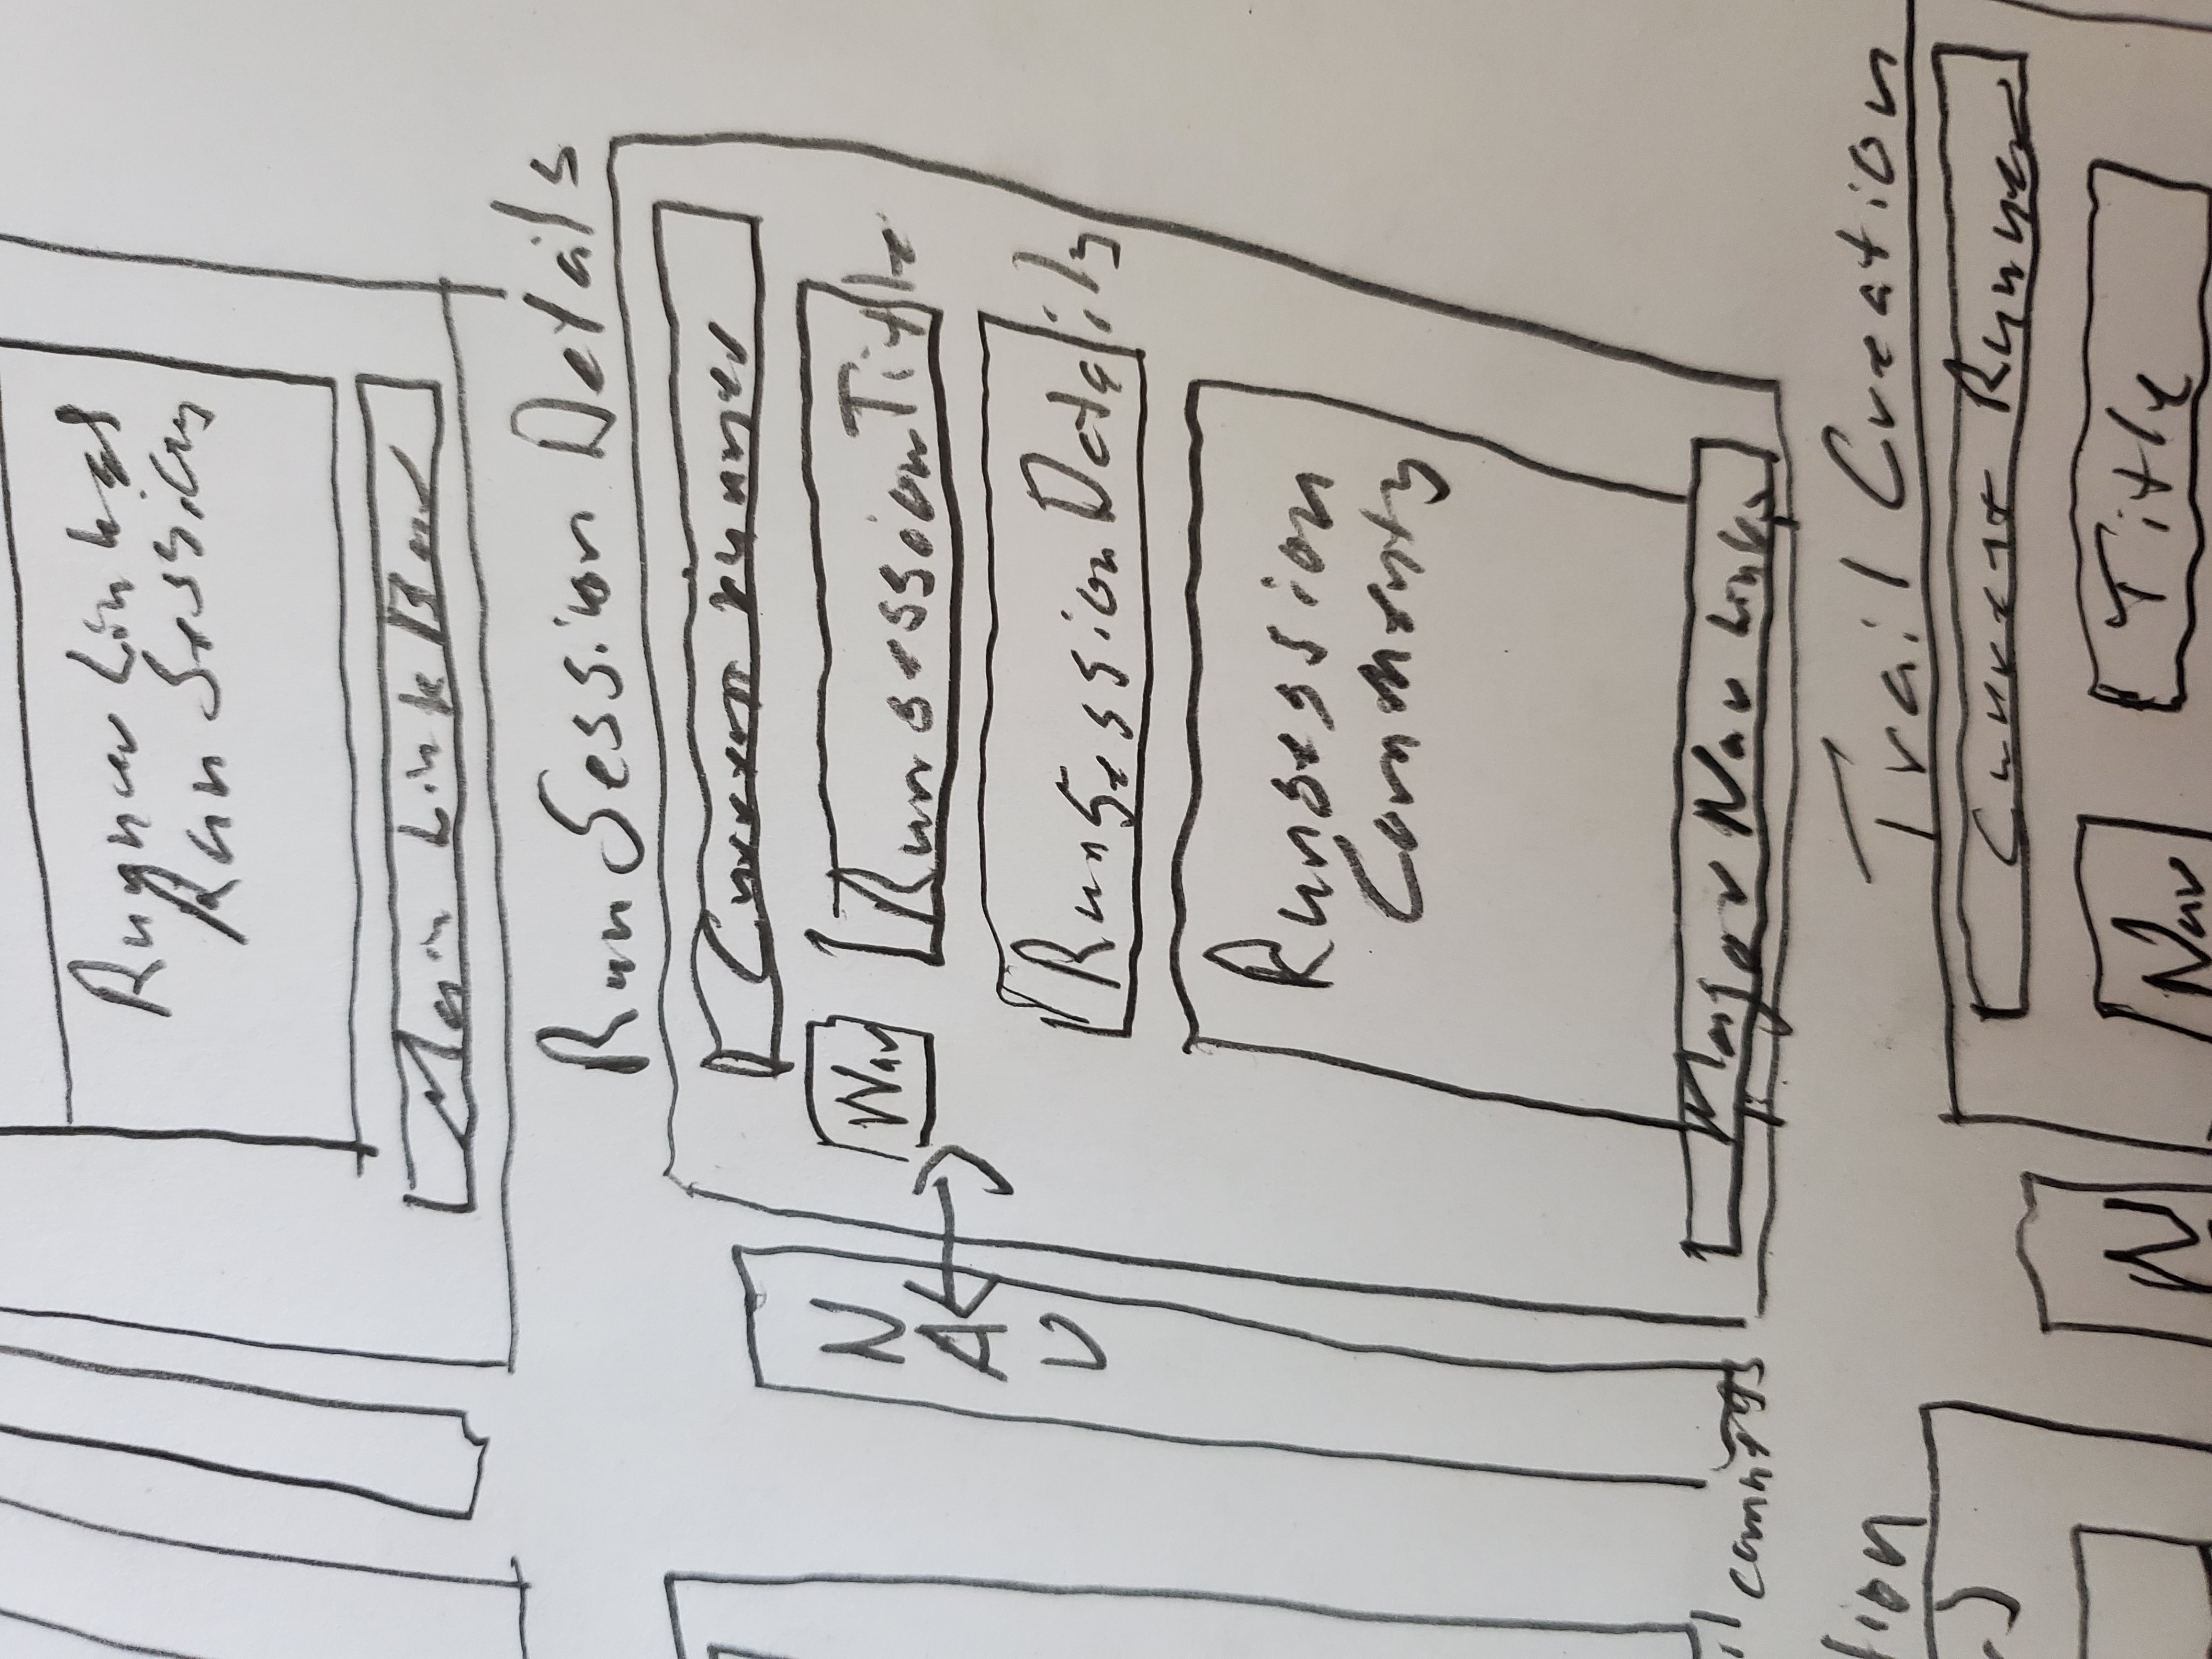 Runner Linked
Run Sessions
Main Link Bar
Run Session Details
Current runner
N
A
V
Nav
Runsession Title
Run Session Details
Runsession
Comments
Major Nav Links
Trail Creation
tion
Current Runner
N
Nav
Title